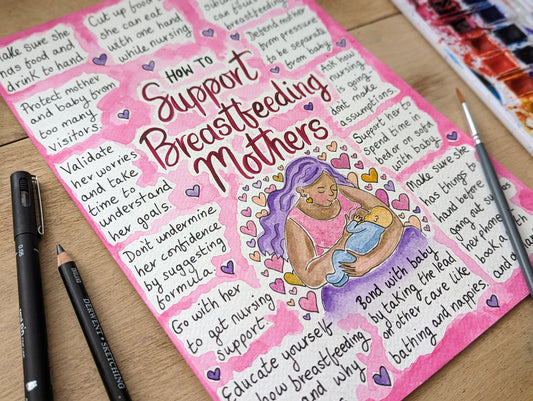 HOW TO
Support
Breastfeeding
Mothers
Make sure she
has food and
drink to hand.
Cut up food
she can eat
with one hand
while nursing
breastfeeding
Defend mother
from pressure
to be separate
from baby.
Protect mother
and baby from
too many
visitors.
Ask how
nursing
is going-
don't make
assumptions.
Validate
her worries
and take
time to
understand
her goals.
Support her to
spend time in
bed or on sofa
with baby.
Don't undermine
her confidence
by suggesting
formula.
Make sure she
has things to
hand before
going out such as
her phone,
book, a
and
Go with her
to get nursing
support.
Bond with baby
by taking the lead
on other care like
bathing and nappies.
Educate yourself
how breastfeeding
and why
0.05
DERWENT • SKETCHING